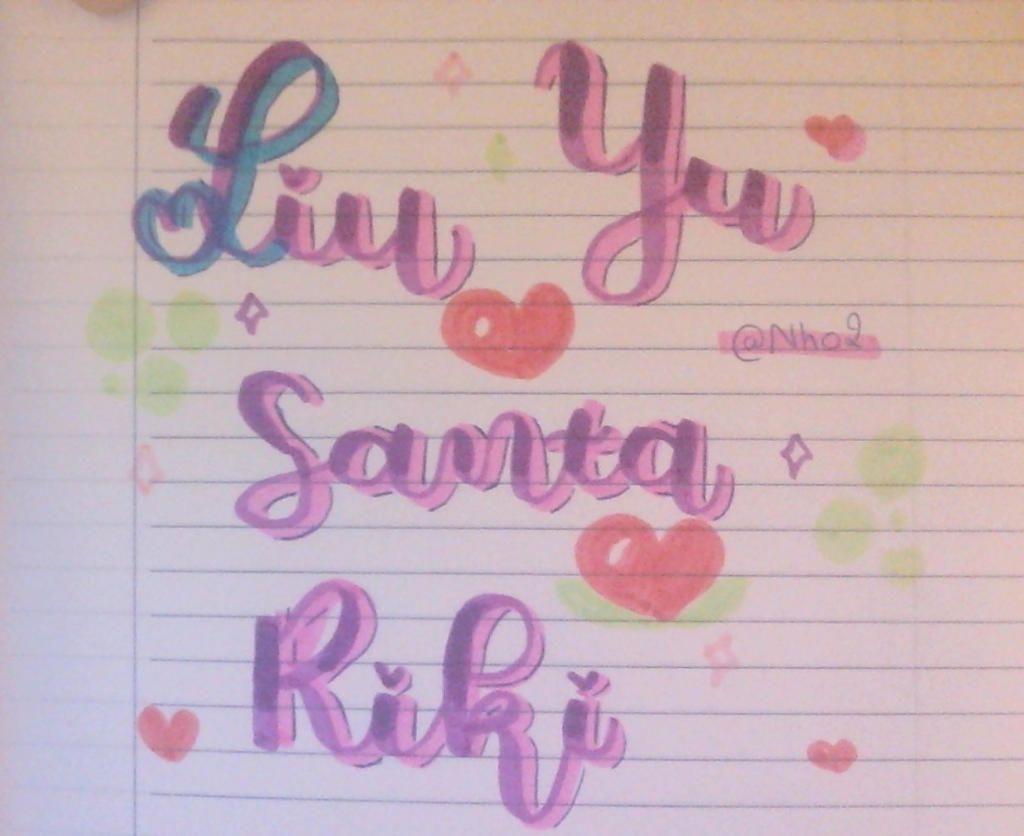 Liu Yu
@Nho2
Santa
Riki